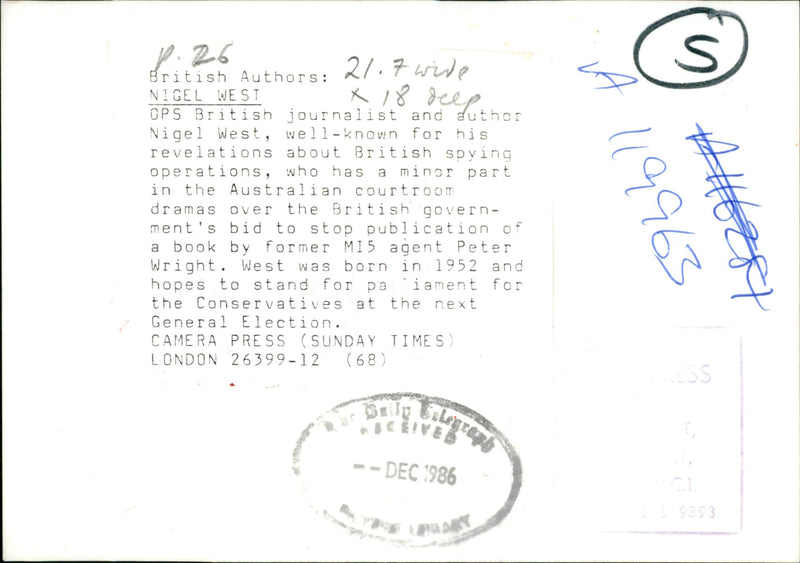 p. 26
British Authors:
21.7 wide
x 18 deep
NIGEL WEST
OPS British journalist and author
Nigel West, well-known for his
revelations about British spying
operations, who has a minor part
in the Australian courtroom
dramas over the British govern-
ment's bid to stop publication of
a book by former MI5 agent Peter
Wright. West was born in 1952 and
hopes to stand for parliament for
the Conservatives at the next
General Election.
CAMERA PRESS (SUNDAY TIMES)
LONDON 26399-12 (68)
S
A 119963
The Daily Telegraph
RECEIVED
-- DEC 1986
LIBRARY
C.1.
9393